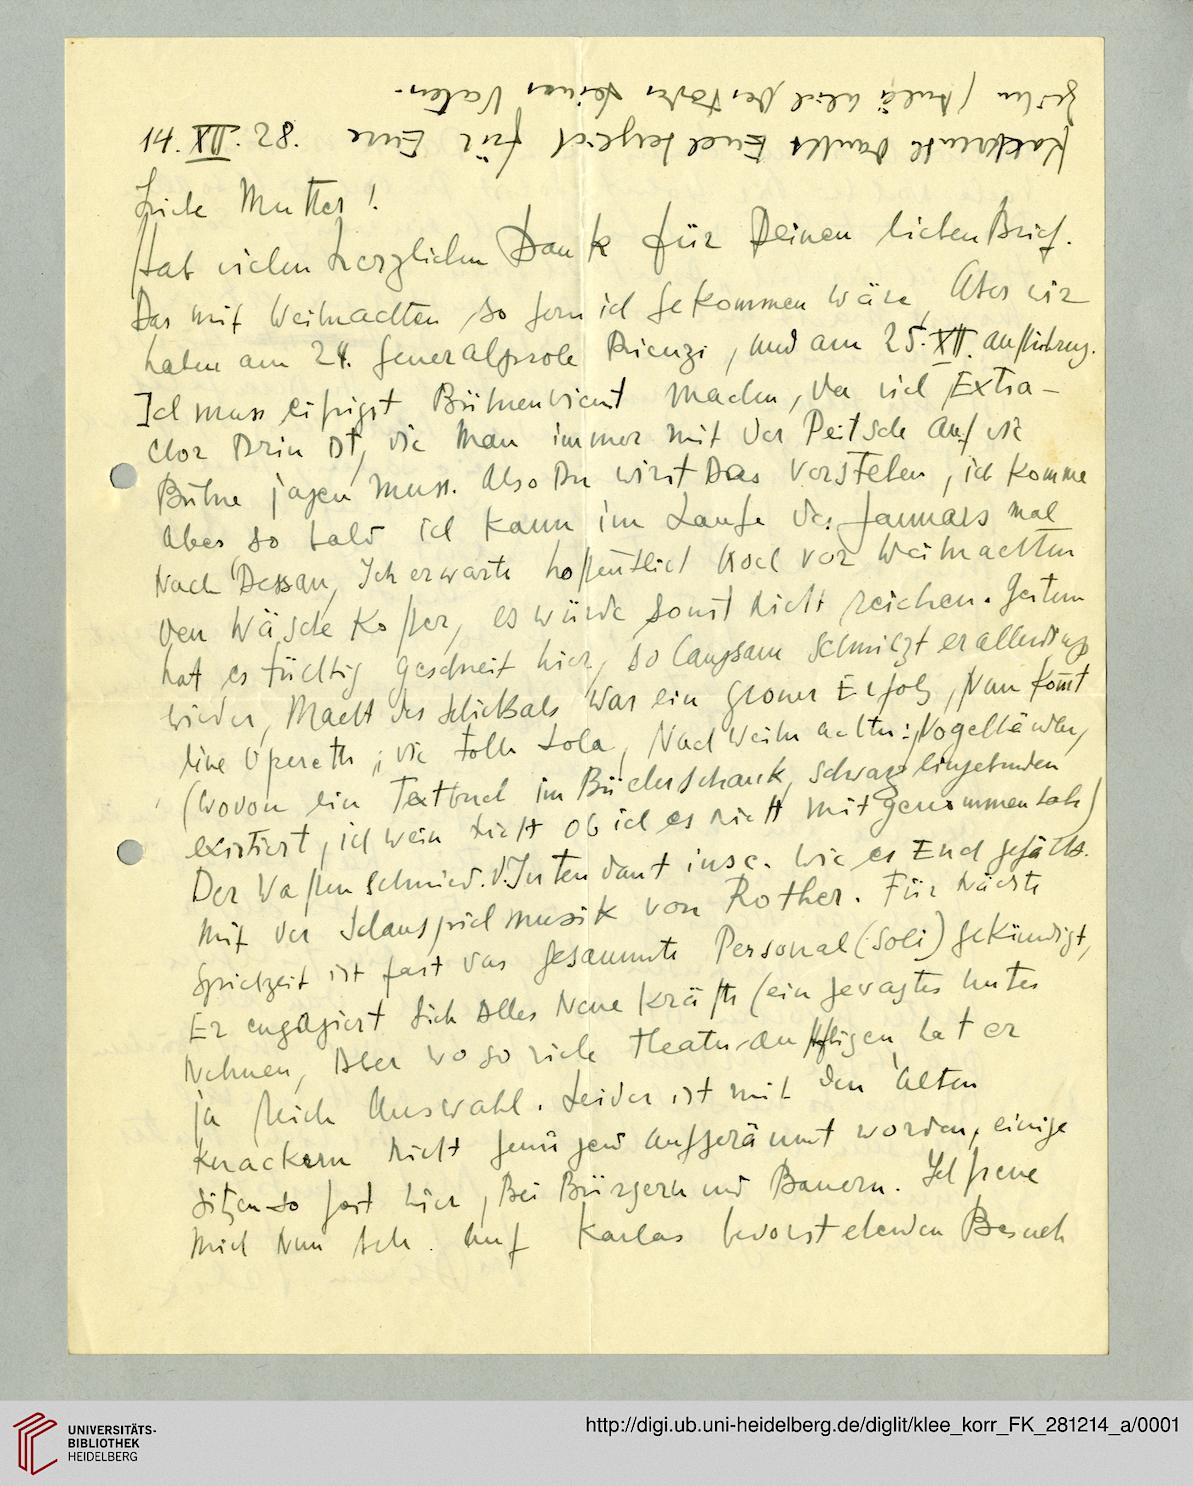 14. XII. 28.
Liebe Mutter!
Hab vielen herzlichen Dank für Deinen lieben Brief.
Das mit Weihnachten, so gern ich gekommen wäre, Aber wir
haben am 24. Generalprobe Rienzi, und am 25. XII. Aufführung.
Ich muss eifrigst Bühnendienst machen, da viel Extra-
chor drin ist, die man immer mit der Peitsche auf die
Bühne jagen muss. Also Du wirst Das verstehen, ich komme
aber so bald ich kann im Laufe des Januars mal
nach Dessau, Ich erwarte hoffentlich noch vor Weihnachten
den Wäsche Koffer, es würde sonst nicht reichen. Gestern
hat es tüchtig geschneit hier, so langsam schmilzt er allerdings
wieder, Macht des Schicksals war ein grosser Erfolg, Nun kommt
eine Operette, „die tolle Lola, Nach Weihnachten: Vogelhändler,
(wovon ein Textbuch im Bücherschrank, schwarz eingebunden
existiert, ich weiss nicht ob ich es nicht mitgenommen habe)
Der Waffenschmied. V. Intendant insc. Wie es Euch gefällt.
mit der Schauspielmusik von Rother. Für nächste
Spielzeit ist fast das gesammte Personal (Soli) gekündigt,
Er engagiert sich Alles Neue Kräfte (ein gewagtes
Nehmen, Aber wo so viele Theater auffliegen, hat er
ja reich Auswahl. Leider ist mit den Alten
Knackern nicht genügend aufgeräumt worden, einige
sitzen so fest hier, Bei Bürgern und Bauern. Ich freue
mich nun sehr auf Karlas bevorstehenden Besuch
Karlchen dankt Euch herzlich für Eure
Zeilen anlässlich des Todes seines Vaters.
UNIVERSITÄTS-
BIBLIOTHEK
HEIDELBERG
http://digi.ub.uni-heidelberg.de/diglit/klee_korr_FK_281214_a/0001